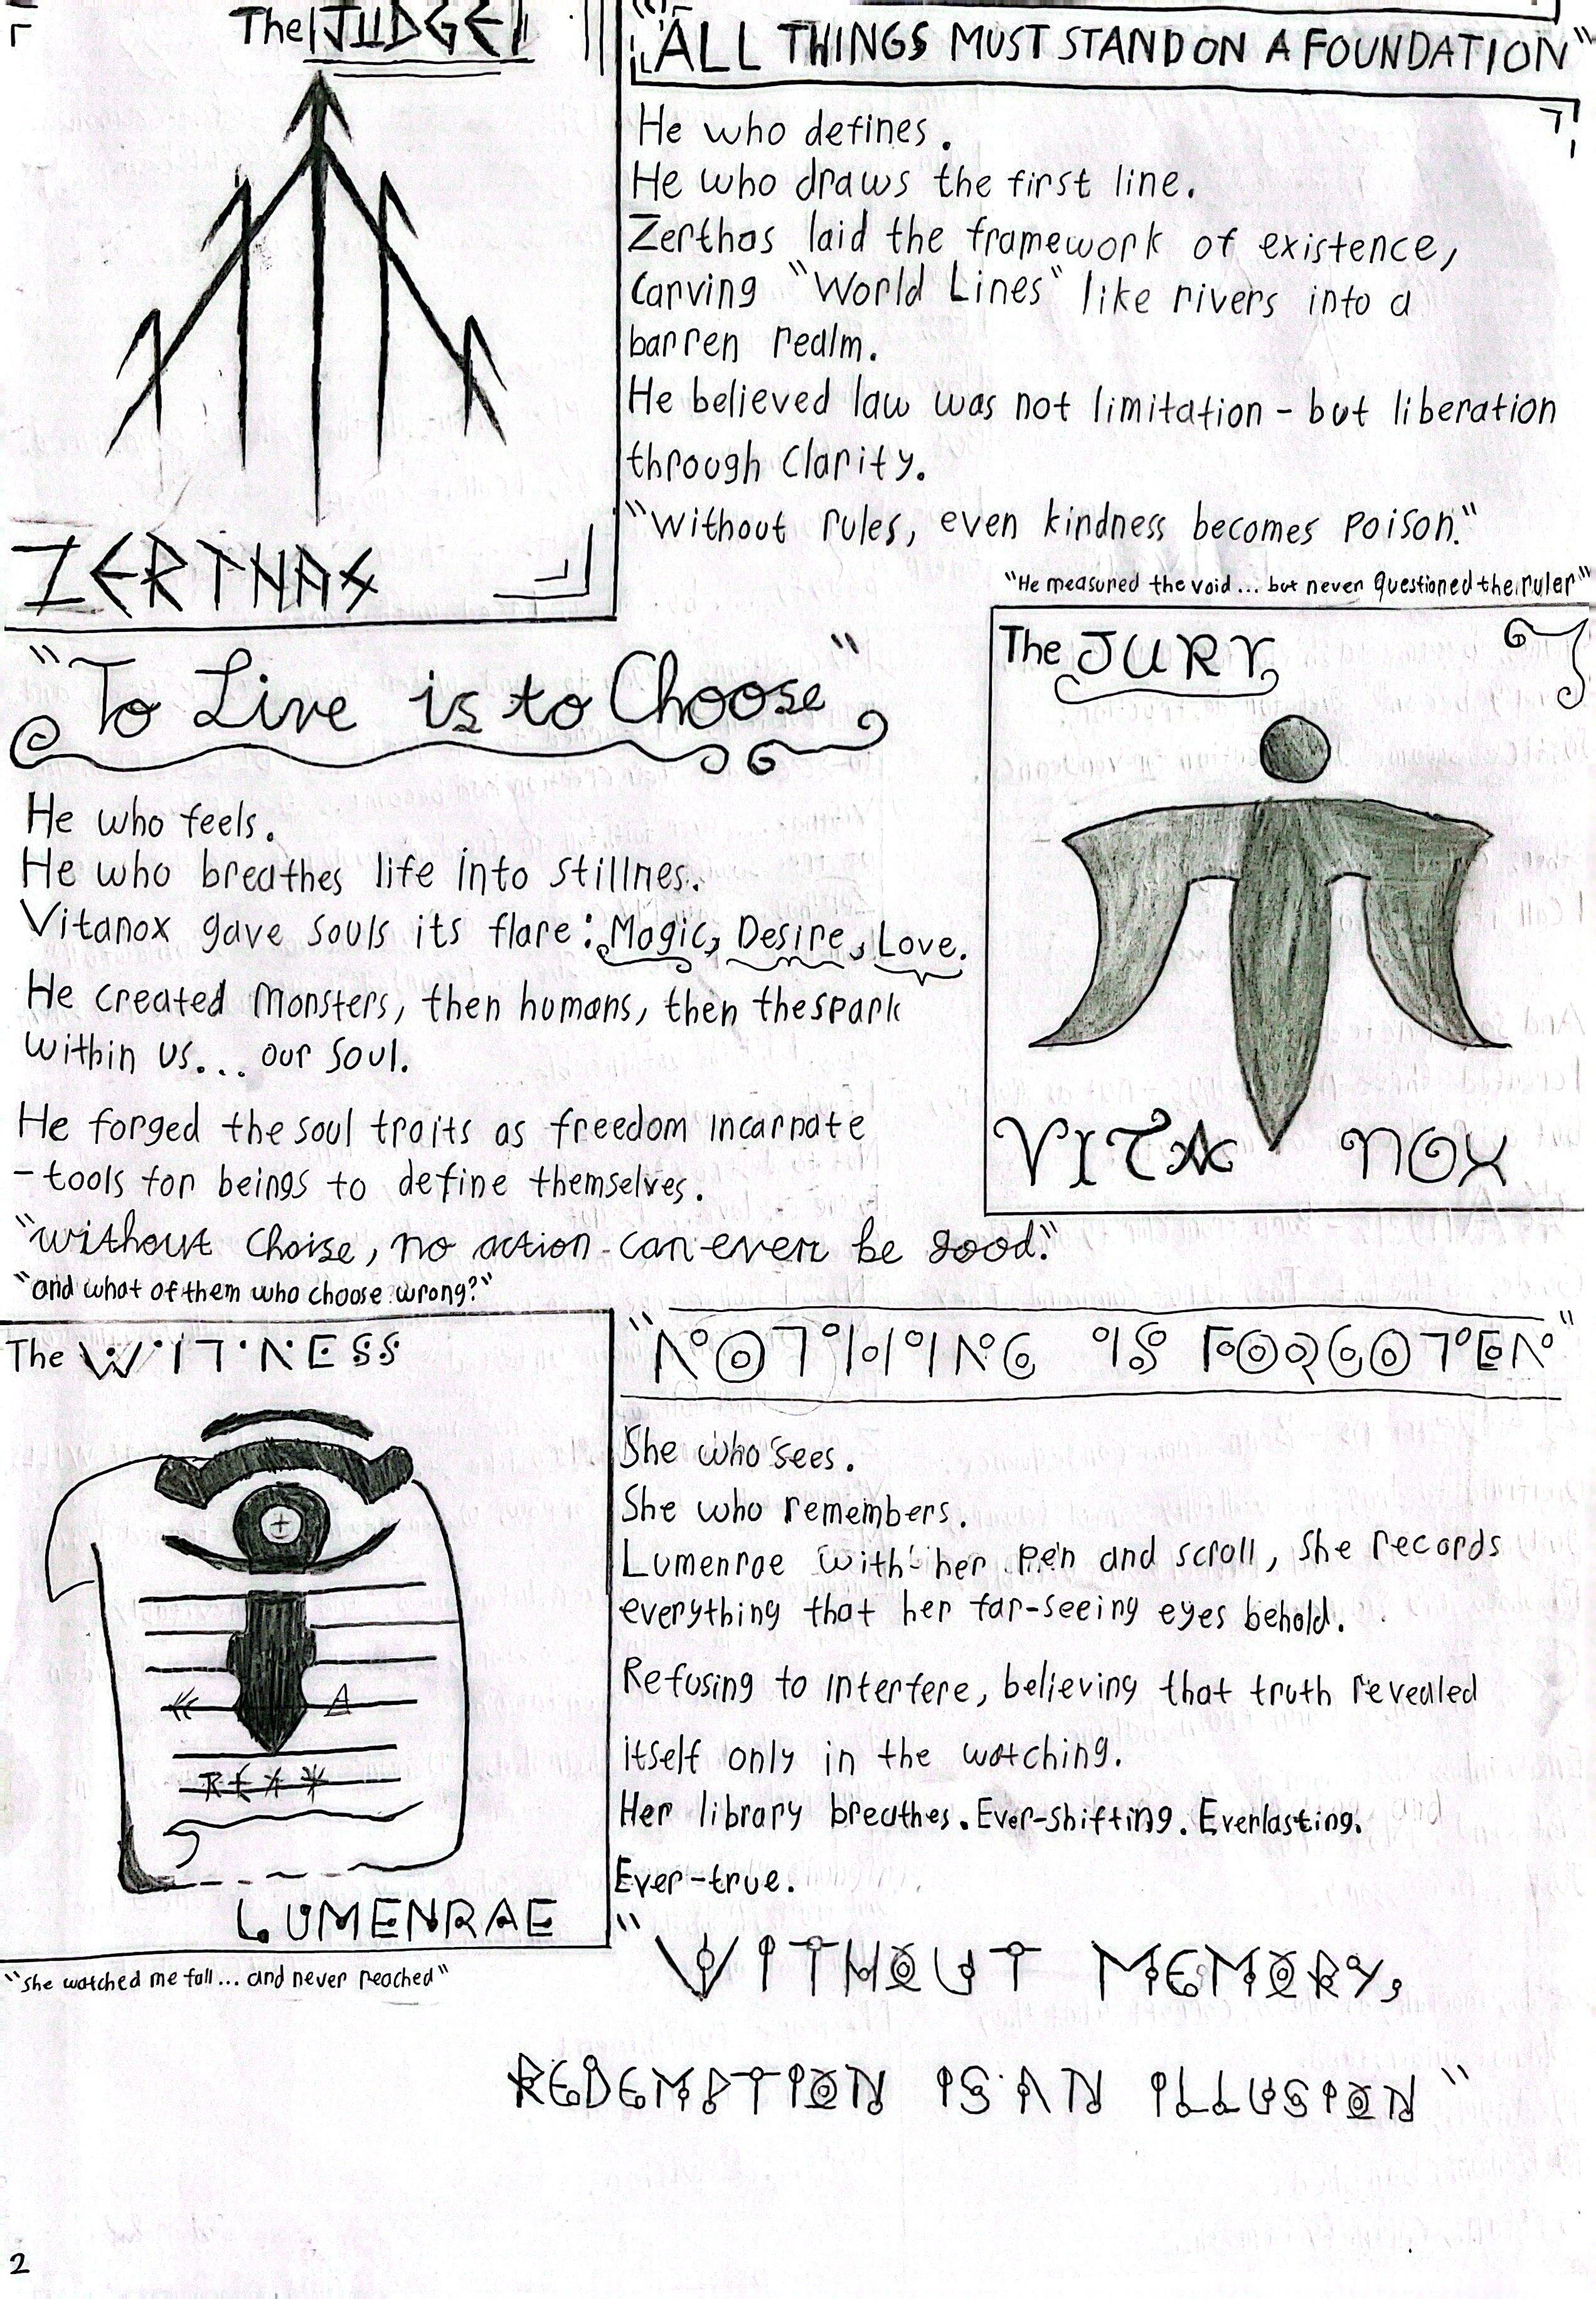 The JUDGE
"ALL THINGS MUST STAND ON A FOUNDATION"
He who defines.
He who draws the first line.
Zerthas laid the framework of existence,
Carving "World Lines" like rivers into a
barren realm.
He believed law was not limitation - but liberation
through Clarity.
"Without rules, even kindness becomes Poison."
"He measured the void... but never Questioned the ruler"
ZERTHAS
"To Live is to Choose"
The JURY
He who feels.
He who breathes life into stillnes.
Vitanox gave souls its flare: Magic, Desire, Love.
He created Monsters, then humans, then the spark
within us... our Soul.
He forged the soul traits as freedom incarnate
- tools for beings to define themselves.
"without Choise, no action can ever be good."
"and what of them who choose wrong?"
VITA NOX
The WITNESS
"NOTHING IS FORGOTEN"
She who sees.
She who remembers.
Lumenrae with her Pen and scroll, She records
everything that her far-seeing eyes behold.
Refusing to interfere, believing that truth revealed
itself only in the watching.
Her library breathes. Ever-shifting. Everlasting.
Ever-true.
LUMENRAE
"She watched me fall... and never reached"
"WITHOUT MEMORY,
REDEMPTION IS AN ILLUSION"
2